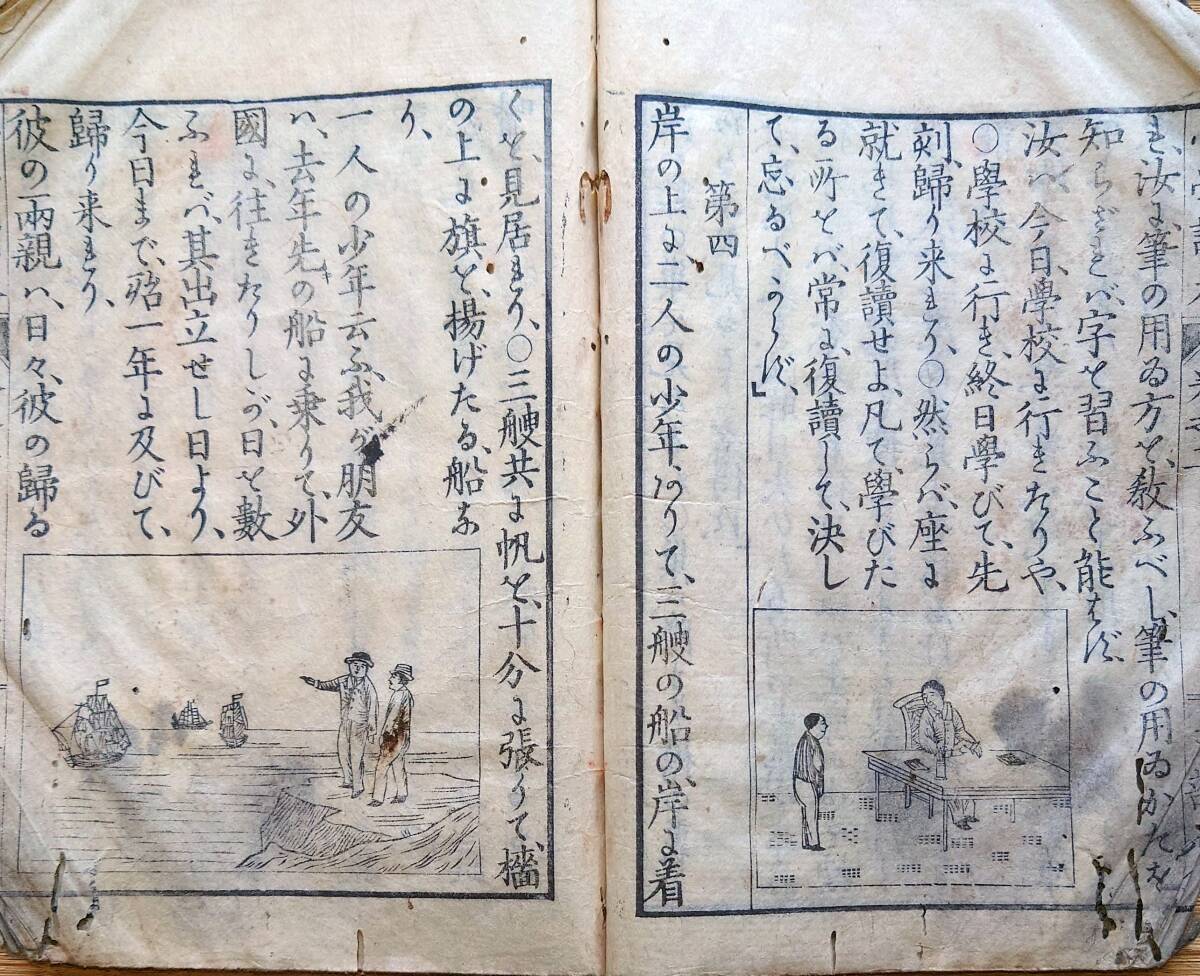 れ、汝に筆の用ゐ方を、敎ふべし、筆の用ゐかたを
知らざれバ、字を習ふこと能はず、
汝ハ、今日、學校に行きたりや、
〇學校に行き、終日學びて、先
刻、歸り来れり、〇然らバ、座に
就きて、復讀せよ、凡て、學びた
る所をバ、常に、復讀して、決し
て、忘るべからず、」
第四
岸の上に、二人の少年ありて、三艘の船の、岸に着
くを、見居れり、〇三艘共に、帆を、十分に張りて、檣
の上に旗を、揚げたる、船な
り、
一人の少年云ふ、我が朋友
ハ、去年先きの船に乗りて、外
國に、往きたりしが、日を數
ふれバ、其出立せし日より、
今日まで、殆一年に及びて、
歸り来れり、
彼の両親ハ、日々、彼の歸る